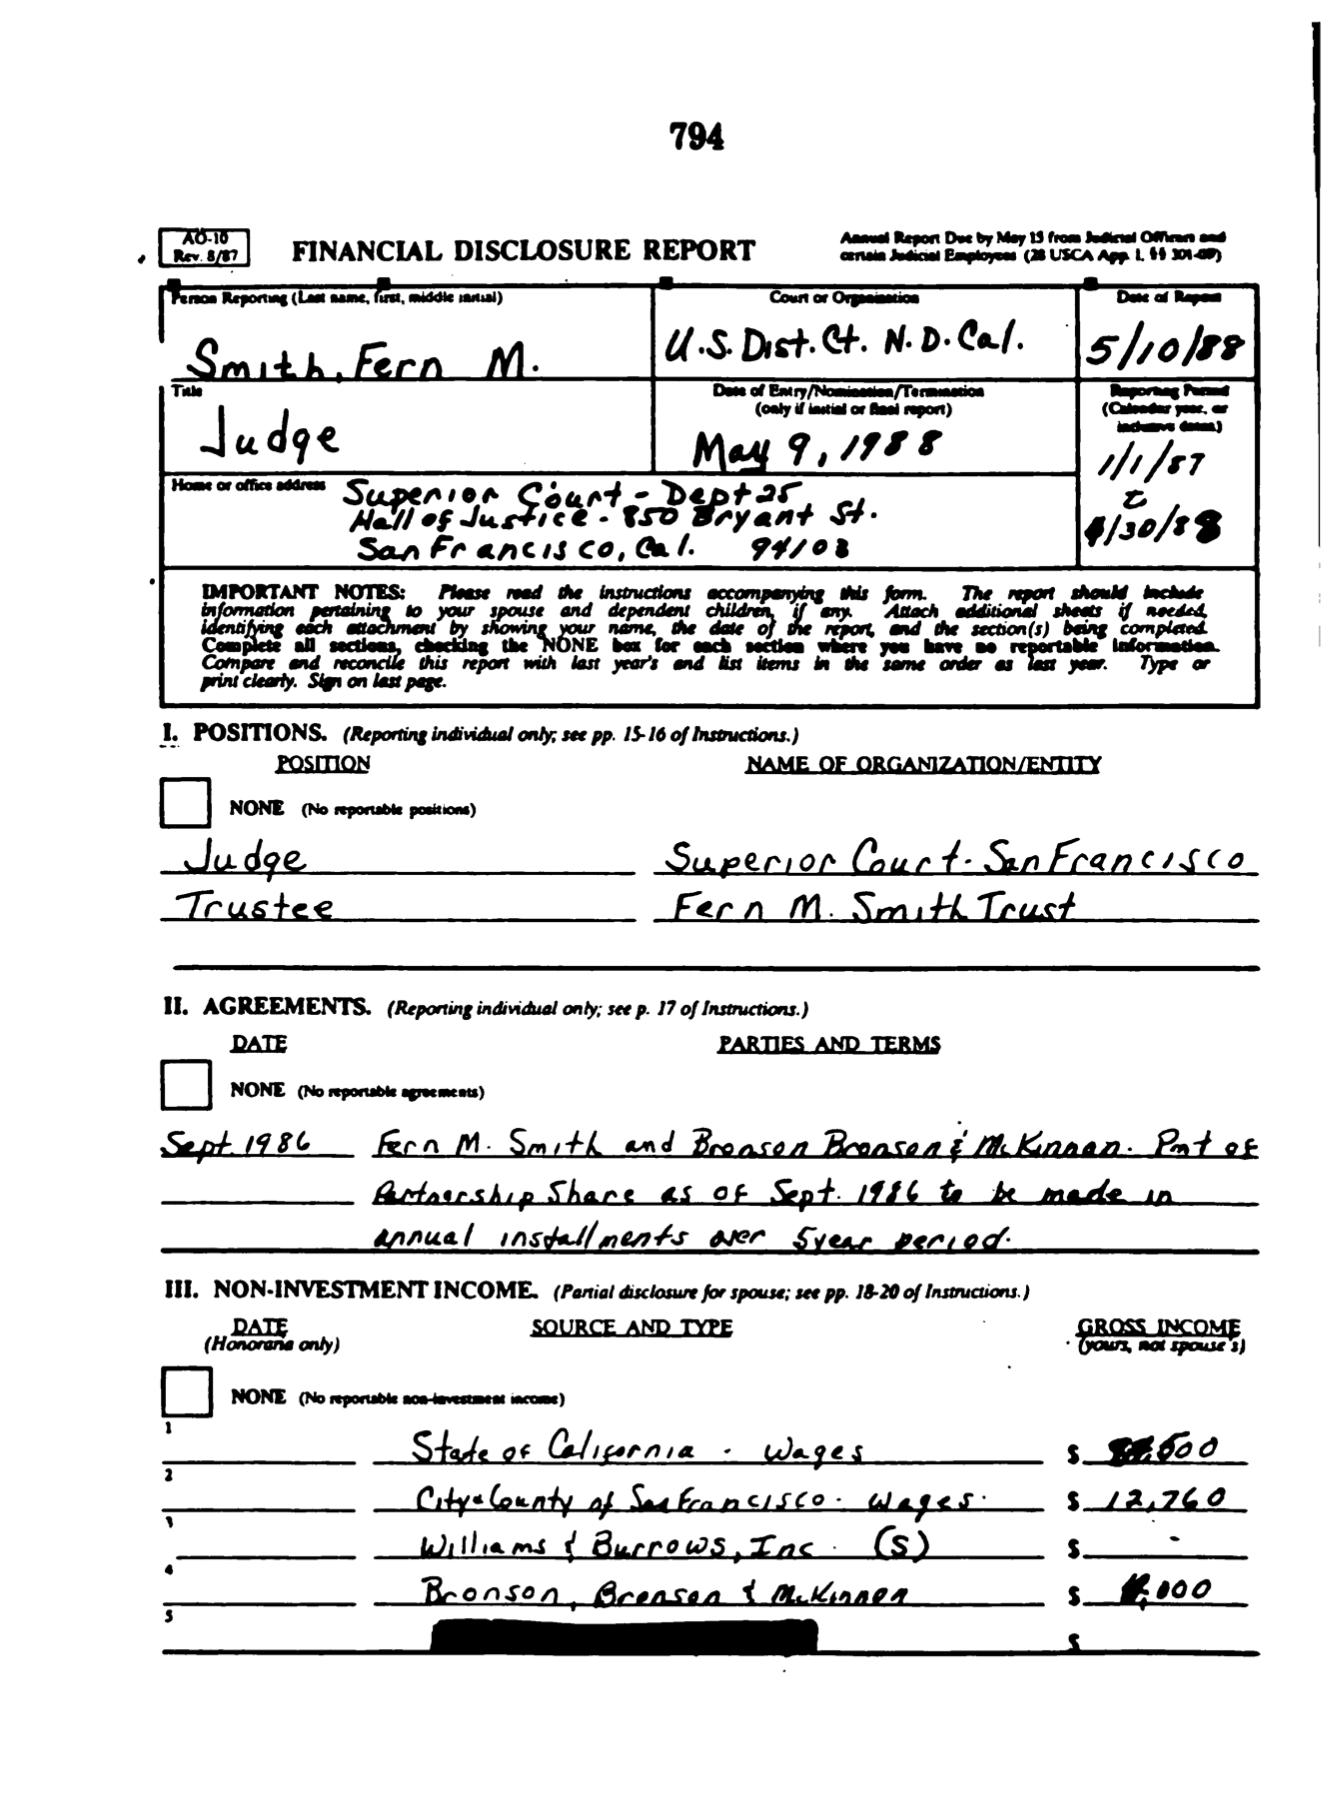 794
AO-10
Rev. 8/87
FINANCIAL DISCLOSURE REPORT
Annual Report Due by May 15 from Judicial Officers and
certain Judicial Employees (28 USCA App. I, §§ 301-09)
Person Reporting (Last name, first, middle initial)
Smith, Fern M.
Court or Organization
U.S. Dist. Ct. N.D. Cal.
Date of Report
5/10/88
Title
Judge
Date of Entry/Nomination/Termination
(only if initial or final report)
May 9, 1988
Reporting Period
(Calendar year, or
inclusive dates)
1/1/87
to
4/30/88
Home or office address
Superior Court - Dept 25
Hall of Justice - 850 Bryant St.
San Francisco, Cal. 94103
IMPORTANT NOTES: Please read the instructions accompanying this form. The report should include
information pertaining to your spouse and dependent children, if any. Attach additional sheets if needed,
identifying each attachment by showing your name, the date of the report, and the section(s) being completed.
Complete all sections, checking the NONE box for each section where you have no reportable information.
Compare and reconcile this report with last year's and list items in the same order as last year. Type or
print clearly. Sign on last page.
I. POSITIONS. (Reporting individual only; see pp. 15-16 of Instructions.)
POSITION NAME OF ORGANIZATION/ENTITY
NONE (No reportable positions)
Judge Superior Court - San Francisco
Trustee Fern M. Smith Trust
II. AGREEMENTS. (Reporting individual only; see p. 17 of Instructions.)
DATE PARTIES AND TERMS
NONE (No reportable agreements)
Sept. 1986 Fern M. Smith and Bronson Bronson & McKinnon. Pmt of
Partnership Share as of Sept. 1986 to be made in
annual installments over 5 year period.
III. NON-INVESTMENT INCOME. (Partial disclosure for spouse; see pp. 18-20 of Instructions.)
DATE SOURCE AND TYPE GROSS INCOME
(Honoraria only) (yours, not spouse's)
NONE (No reportable non-investment income)
1 State of California - Wages $
2 City & County of San Francisco - Wages. $ 12,760
3 Williams & Burrows, Inc. (S) $ -
4 Bronson, Bronson & McKinnon $
5 $